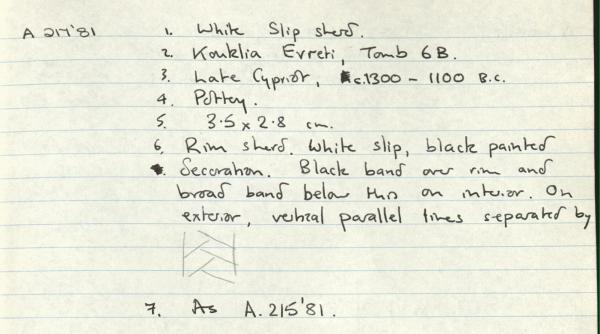 A 217'81
1. White Slip sherd.
2. Kouklia Evreti, Tomb 6B.
3. Late Cypriot, c.1300 - 1100 B.C.
4. Pottery.
5. 3.5 x 2.8 cm.
6. Rim sherd. White slip, black painted
decoration. Black band over rim and
broad band below this on interior. On
exterior, vertical parallel lines separated by
7. As A.215'81.